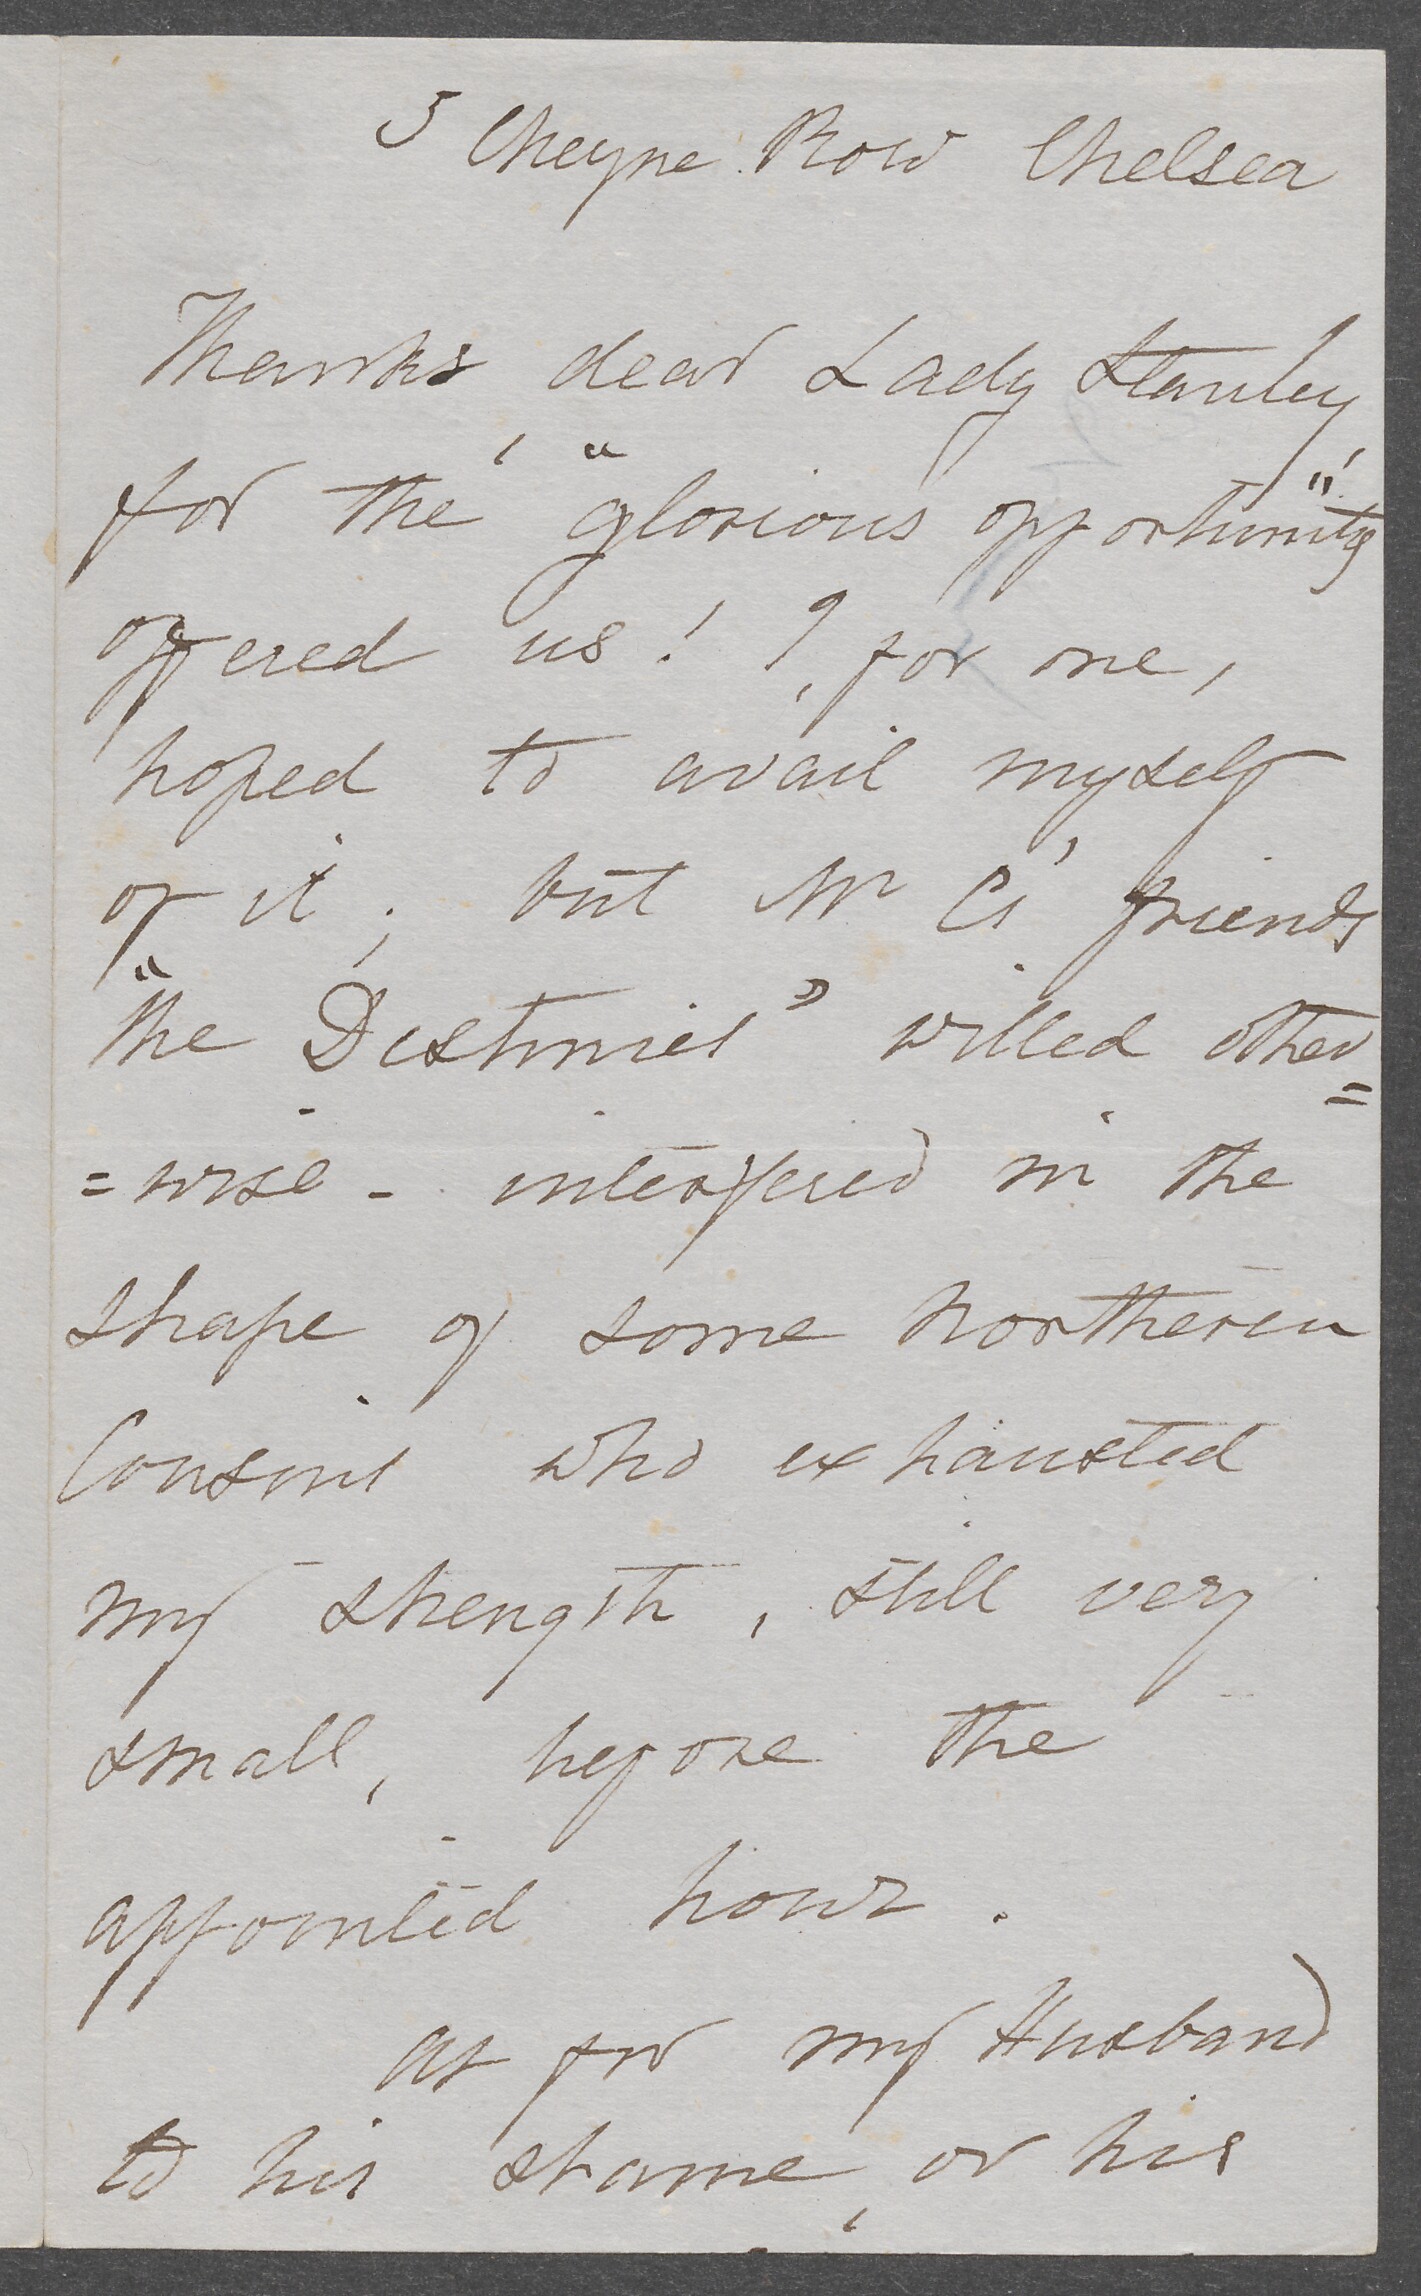 5 Cheyne Row Chelsea
Thanks dear Lady Stanley,
for the "glorious opportunity"
offered us! I, for one,
hoped to avail myself
of it; but Mr C's friends
"the Destinies" willed other=
=wise - interfered in the
shape of some northeren
Cousins who exhausted
my strength, still very
small, before the
appointed hour.
As for my Husband
to his shame, or his